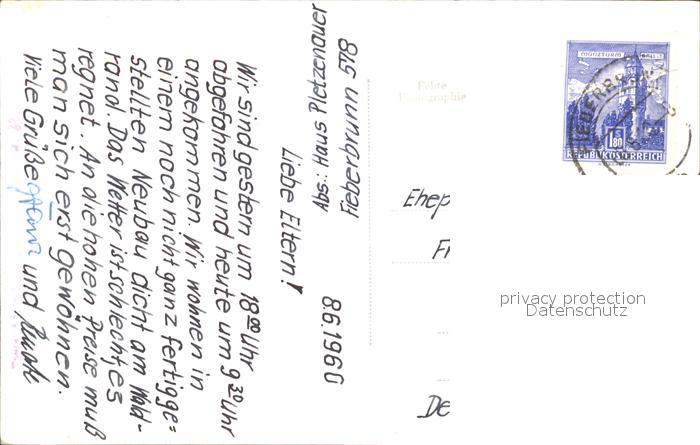 Abs: Haus Pletzenauer
Fieberbrunn 518
8.6.1960
Liebe Eltern!
Wir sind gestern um 18 00 Uhr
abgefahren und heute um 9 30 Uhr
angekommen. Wir wohnen in
einem noch nicht ganz fertigge=
stellten Neubau dicht am Wald-
rand. Das Wetter ist schlecht, es
regnet. An die hohen Preise muß
man sich erst gewöhnen.
Viele Grüße und
Echte
Photographie
MÜNZTURM HALL i. T.
S 1.80
REPUBLIK ÖSTERREICH
Ehep
Fr
De
privacy protection
Datenschutz